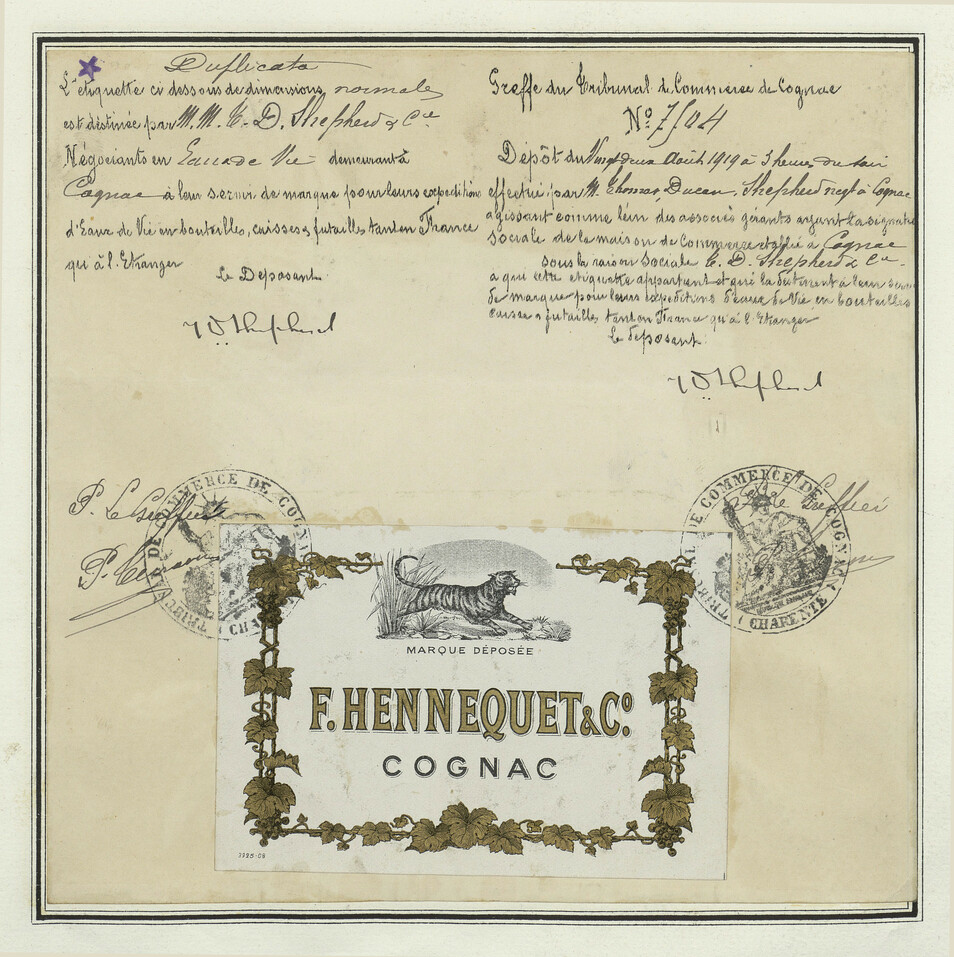 Duplicata
L'étiquette ci dessous de dimensions normales
est destinée par M.M. T. D. Shepherd & Cie
Négociants en Eaux de Vie demeurant à
Cognac à leur servir de marque pour leurs expéditions
d'Eaux de Vie en bouteilles, caisses & futailles tant en France
qu'à l'Etranger
Le Déposant
T D Shepherd
Greffe du Tribunal de Commerce de Cognac
No 7504
Dépôt du Vingt deux Août 1919 à 3 heures du soir
effectué par M. Thomas Ducan Shepherd negt à Cognac
agissant comme l'un des associés gérants ayant la signature
sociale de la maison de Commerce établie à Cognac
sous la raison sociale T. D. Shepherd & Cie
à qui cette étiquette appartient et qui la destinent à leur servir
de marque pour leurs expéditions d'eaux de Vie en bouteilles
caisses & futailles tant en France qu'à l'Etranger
Le déposant
T D Shepherd
P. Le Greffier
P.
TRIB DE COMMERCE DE COGNAC
CHA
Le Greffier
TRIB DE COMMERCE DE COGNAC
(CHARENTE)
MARQUE DÉPOSÉE
F. HENNEQUET & Co
COGNAC
3225-08